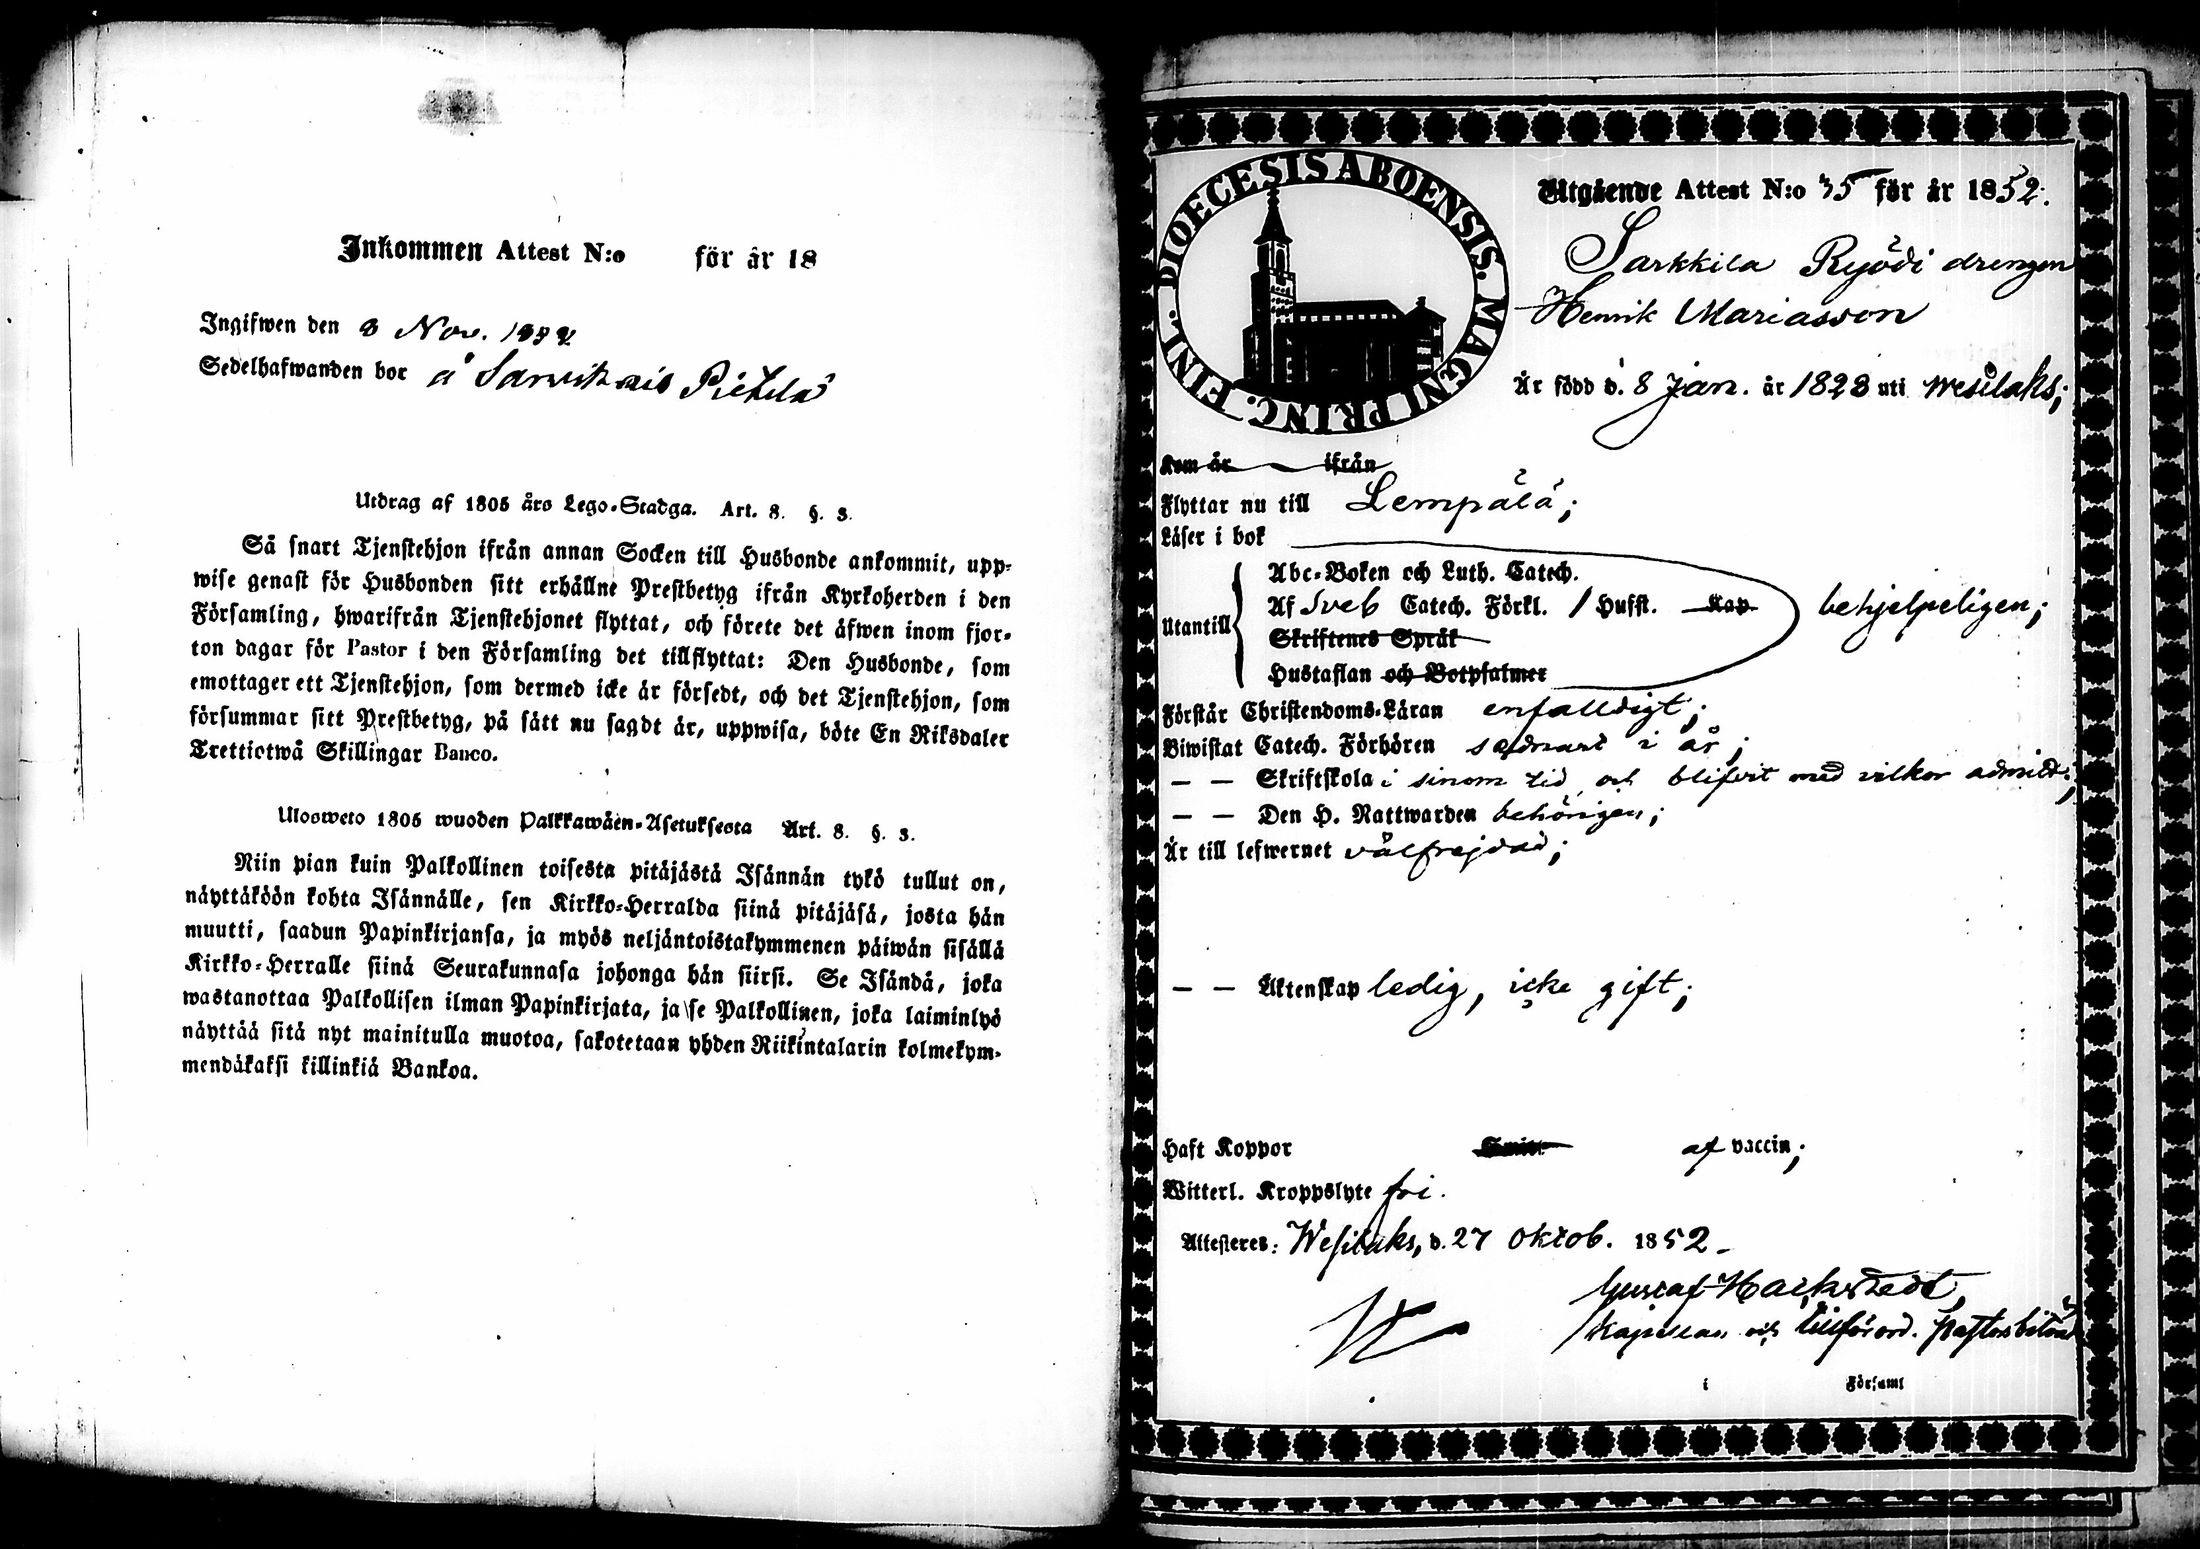 Inkommen Attest N:o för år 18
Ingifwen den 3 Nov. 1852
Sedelhafwanden bor å Sarvikais Pietilä
Utdrag af 1805 års Lego-Stadga. Art. 8. §. 3.
Så snart Tjenstehjon ifrån annan Socken till Husbonde ankommit, upp-
wise genast för Husbonden sitt erhållne Prestbetyg ifrån Kyrkoherden i den
Församling, hwarifrån Tjenstehjonet flyttat, och förete det äfwen inom fjor-
ton dagar för Pastor i den Församling det tillflyttat: Den Husbonde, som
emottager ett Tjenstehjon, som dermed icke är försedt, och det Tjenstehjon, som
försummar sitt Prestbetyg, på sätt nu sagdt är, uppwisa, böte En Riksdaler
Trettiotwå Skillingar Banco.
Ulosweto 1805 wuoden Palkkawäen-Asetuksesta Art. 8. §. 3.
Niin pian kuin Palkollinen toisesta pitäjästä Isännän tykö tullut on,
näyttäköön kohta Isännälle, sen Kirkko-Herralda siinä pitäjäsä, josta hän
muutti, saadun Papinkirjansa, ja myös neljäntoistakymmenen päiwän sisällä
Kirkko-Herralle siinä Seurakunnasa johonga hän siirsi. Se Isändä, joka
wastanottaa Palkollisen ilman Papinkirjata, ja se Palkollinen, joka laiminlyö
näyttää sitä nyt mainitulla muotoa, sakotetaan yhden Riikintalarin kolmekym-
mendäkaksi killinkiä Bankoa.
DIOECESIS ABOENSIS. MAGNI PRINC. FINL.
Utgående Attest N:o 35 för år 1852.
Sarkkila Ryödi drengen
Henrik Mariasson
Är född d. 8 Jan. år 1828 uti Wesilaks;
Kom år ifrån
Flyttar nu till Lempälä;
Läser i bok
Utantill
Abc-Boken och Luth. Catech.
Af Sveb Catech. Förkl. 1 Hufst. Kap
Skriftenes Språk
Hustaflan och Botpsalmer
behjelpeligen;
Förstår Christendoms-Läran enfalldigt;
Biwistat Catech. Förhören sednast i år;
— — Skriftskola i sinom tid och blifvit med vilkor admitt;
— — Den H. Nattwarden behörigen;
Är till lefwernet välfrejdad;
— — Äktenskap ledig, icke gift;
Haft Koppor af vaccin;
Witterl. Kroppslyte fri.
Attesteres: Wesilaks, d. 27 Oktob. 1852.
Gustaf Hackstedt,
Kapellan och tillförord. pastorsbiträd
i Församl